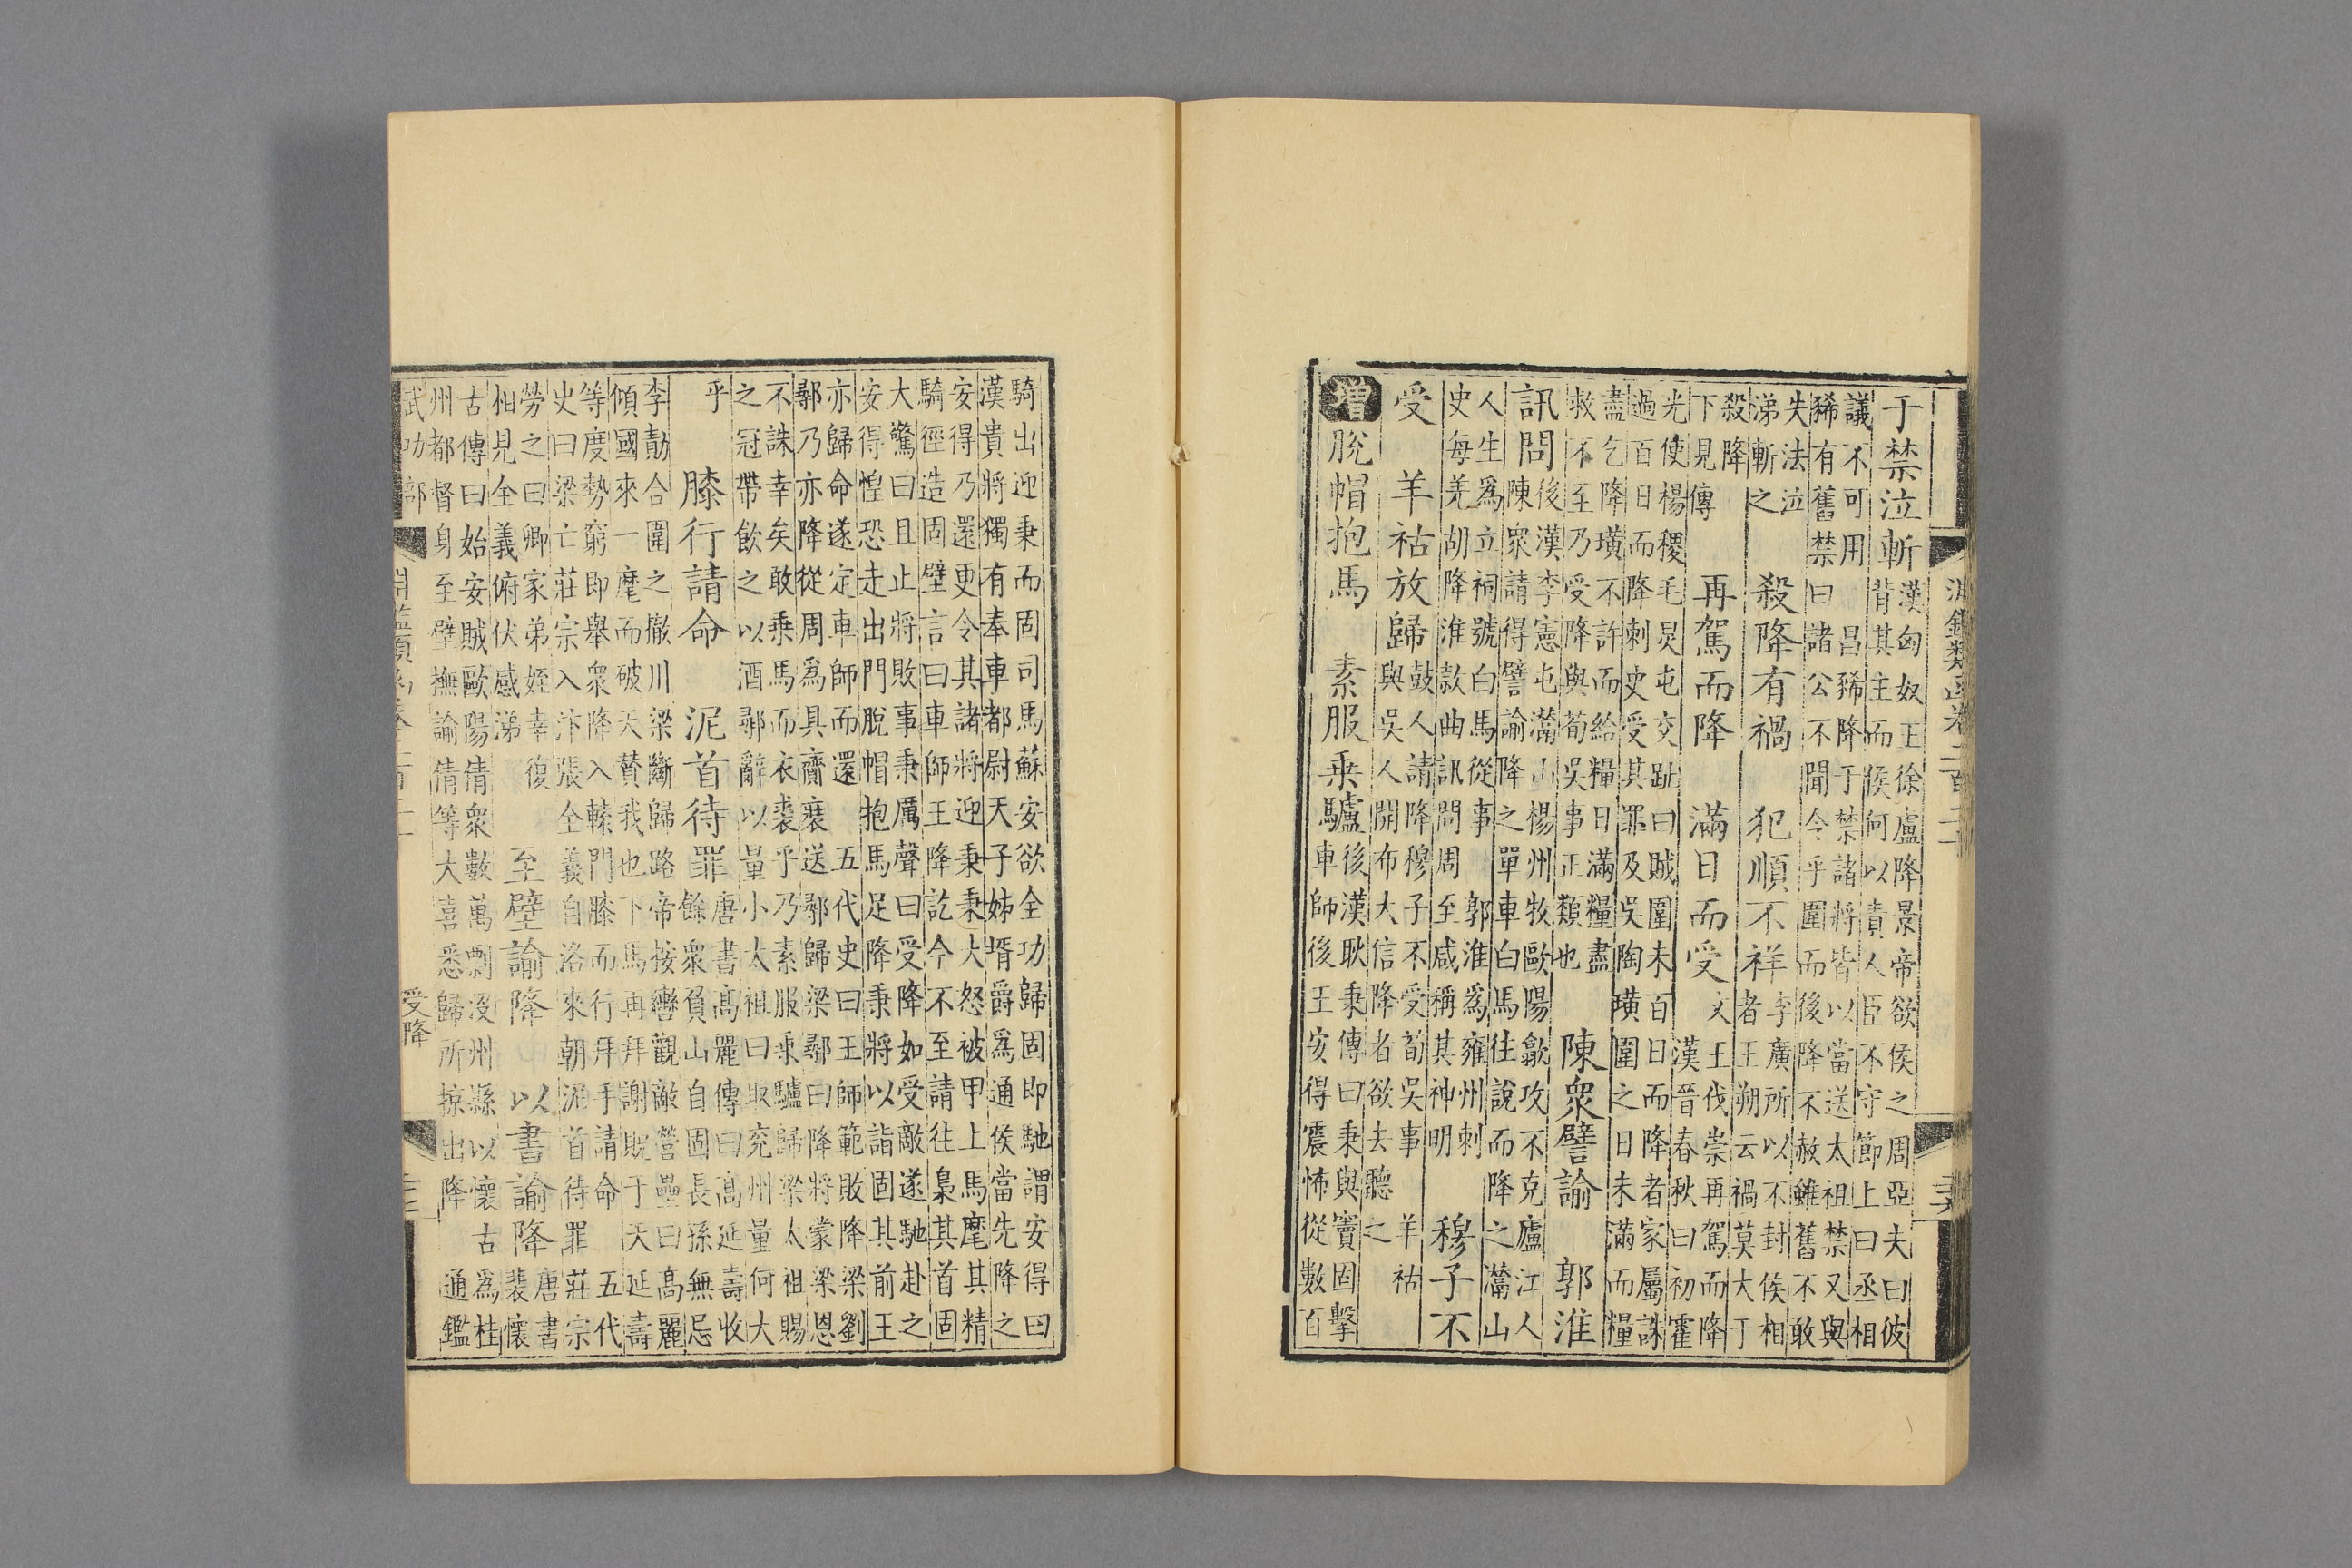 淵鑑類函卷二百二
于禁泣斬 漢匈奴王徐盧降景帝欲侯之周亞夫曰彼
背其主而侯何以責人臣不守節上曰丞相
議不可用 昌豨降于禁諸將皆以當送太祖禁又與
豨有舊禁曰諸公不聞今乎圍而後降不赦雖舊不敢
失法泣
涕斬之 殺降有禍 犯順不祥 李廣所以不封侯相
者王朔云禍莫大于
殺降
下見傳 再駕而降 滿日而受 文王伐崇再駕而降
漢晉春秋曰初霍
光使楊稷毛炅屯交趾曰賊圍未百日而降者家屬誅
過百日而降刺史受其罪及吳陶璜圍之日未滿而糧
盡乞降璜不許而給糧日滿糧盡
救不至乃受降與荀吳事正類也 陳衆譬諭 郭淮
訊問 後漢李憲屯灊山楊州牧歐陽歙攻不克廬江人
陳衆請得譬諭降之單車白馬往說而降之灊山
人生爲立祠號白馬從事 郭淮爲雍州刺
史每羌胡降淮款曲訊問周至咸稱其神明 穆子不
受 羊祜放歸 鼓人請降穆子不受荀吳事 羊祜
與吳人開布大信降者欲去聽之
增 脫帽抱馬 素服乗驢 後漢耿秉傳曰秉與竇固擊
車師後王安得震怖從數百
騎出迎秉而固司馬蘇安欲全功歸固即馳謂安得曰
漢貴將獨有奉車都尉天子姊壻爵爲通侯當先降之
安得乃還更令其諸將迎秉秉大怒被甲上馬麾其精
騎徑造固壁言曰車師王降訖今不至請往梟其首固
大驚曰且止將敗事秉厲聲曰受降如受敵遂馳赴之
安得惶恐走出門脫帽抱馬足降秉將以詣固其前王
亦歸命遂定車師而還 五代史曰王師範敗降梁劉
鄩乃亦降從周爲具齎裝送鄩歸梁鄩曰降將蒙梁恩
不誅幸矣敢乗馬而衣裘乎乃素服乗驢歸梁太祖賜
之冠帶飲之以酒鄩辭以量小太祖曰取兖州量何大
乎 膝行請命 泥首待罪 唐書高麗傳曰高延壽收
餘衆負山自固長孫無忌
李勣合圍之撤川梁斷歸路帝按轡觀敵營壘曰高麗
傾國來一麾而破天贊我也下馬再拜謝既于天延壽
等度勢窮即舉衆降入轅門膝而行拜手請命 五代
史曰梁亡莊宗入汴張全義自洛來朝泥首待罪莊宗
勞之曰卿家弟姪幸復
相見全義俯伏感涕 至壁諭降 以書諭降 唐書
裴懷
古傳曰始安賊歐陽倩衆數萬剽没州縣以懷古爲桂
州都督身至壁撫諭倩等大喜悉歸所掠出降 通鑑
武功部 淵鑑類函卷二百二 受降